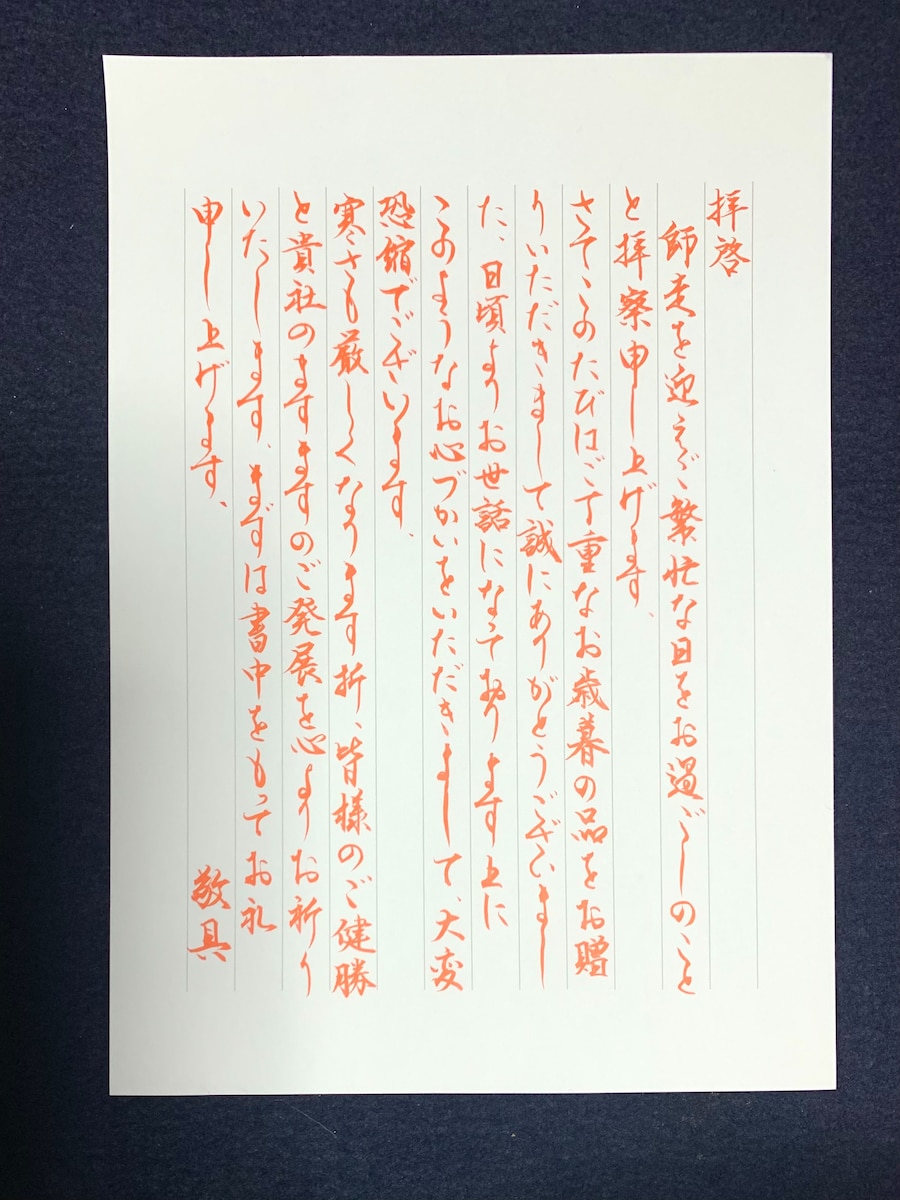 拝啓
師走を迎えご繁忙な日をお過ごしのこと
と拝察申し上げます、
さてこのたびはご丁重なお歳暮の品をお贈
りいただきまして誠にありがとうございまし
た、日頃よりお世話になっております上に
このようなお心づかいをいただきまして、大変
恐縮でございます、
寒さも厳しくなります折、皆様のご健勝
と貴社のますますのご発展を心よりお祈り
いたします、まずは書中をもってお礼
申し上げます、
敬具